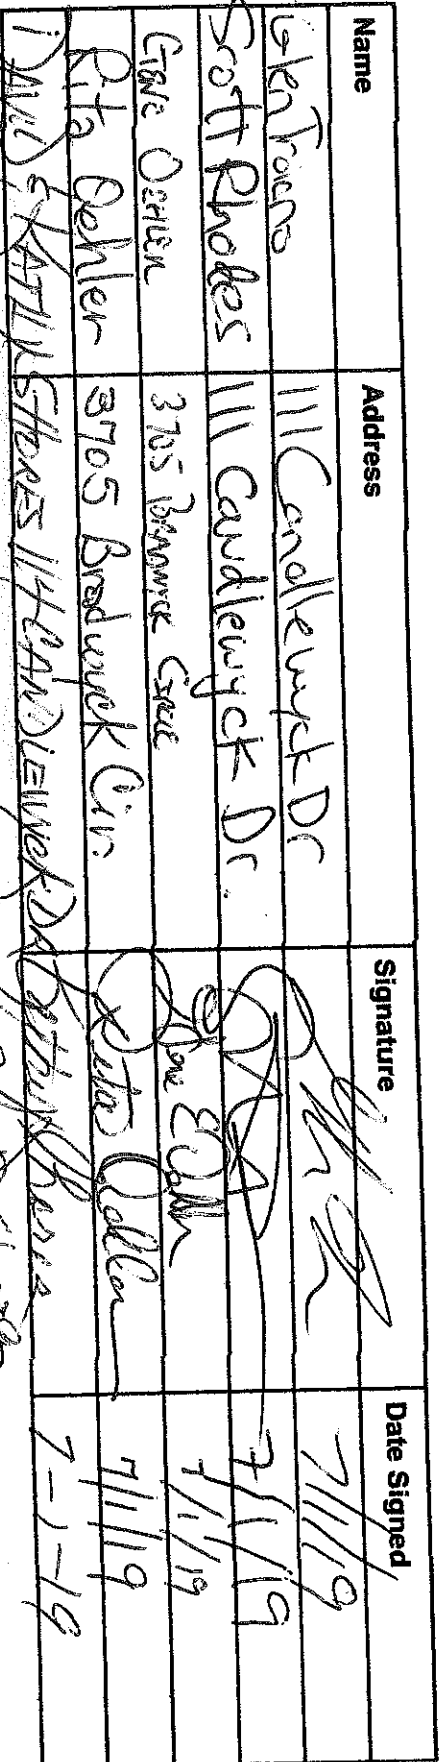 Name Address Signature Date Signed
Glen 111 Candlewyck Dr 7/1/19
Scott Rhodes 111 Candlewyck Dr. 7/1/19
Gene Oehler 3705 Circle 7/1/19
Rita Oehler 3705 Bradwyck Cir. Rita Oehler 7/1/19
DAVID & KATHY 114 CANDLEWYCK DR 7-1-19